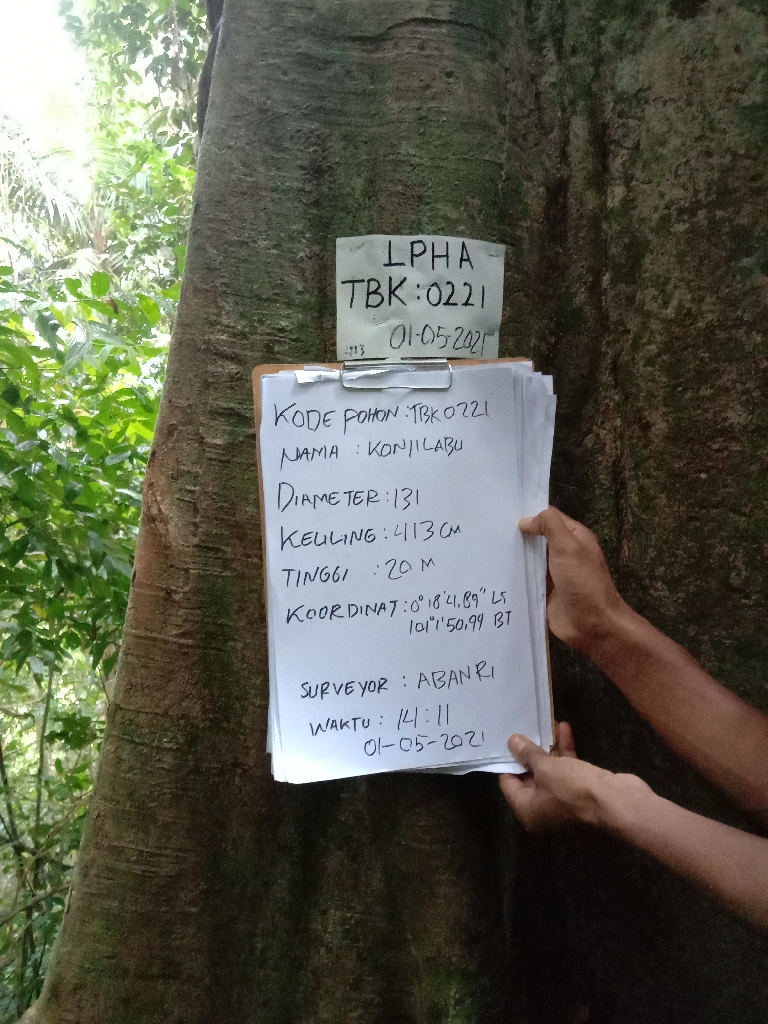 LPHA
TBK:0221
01-05-2021
KODE POHON : TBK0221
NAMA : KONJILABU
DIAMETER : 131
KELILING : 413 CM
TINGGI : 20 M
KOORDINAT : 0°18'41.89" LS
101°1'50.99 BT
SURVEYOR : ABANRI
WAKTU : 14:11
01-05-2021